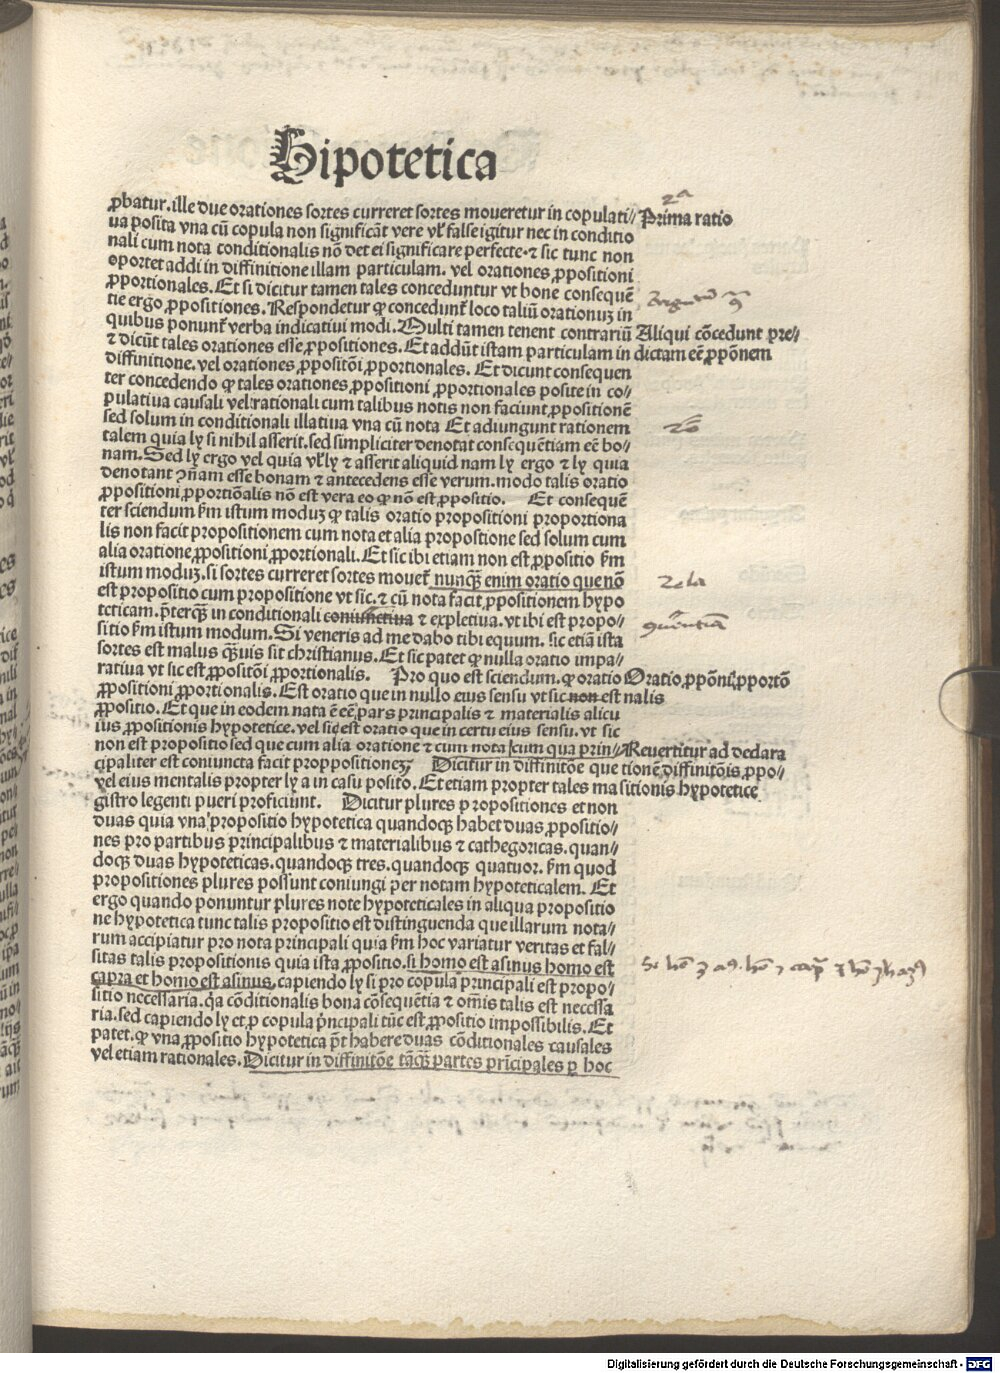 Hipotetica
ꝓbatur. ille due orationes sortes curreret sortes moueretur in copulati⸗ Prima ratio
ua posita vna cū copula non significāt vere vl̓ false igitur nec in conditio
nali cum nota conditionalis nō det ei significare perfecte. ⁊ sic tunc non
oportet addi in diffinitione illam particulam. vel orationes ꝓpositioni
ꝓportionales. Et si dicitur tamen tales conceduntur vt bone consequē
tie ergo ꝓpositiones. Respondetur ꝙ concedunt̄ loco taliū orationuꝫ in
quibus ponunt̄ verba indicatiui modi. Multi tamen tenent contrariū Aliqui cōcedunt pre⸗
⁊ dicūt tales orationes esse ꝓpositiones. Et addūt istam particulam in dictam eē ꝓpōnem
diffinitione. vel orationes ꝓpositōi ꝓportionales. Et dicunt consequen
ter concedendo ꝙ tales orationes ꝓpositioni ꝓportionales posite in co⸗
pulatiua causali vel rationali cum talibus notis non faciunt ꝓpositionē
sed solum in conditionali illatiua vna cū nota Et adiungunt rationem
talem quia ly si nihil asserit. sed simpliciter denotat consequētiam eē bo⸗
nam. Sed ly ergo vel quia vl̓ ly ⁊ asserit aliquid nam ly ergo ⁊ ly quia
denotant ↄ̄ñam esse bonam ⁊ antecedens esse verum. modo talis oratio
ꝓpositioni ꝓportiōalis nō est vera eo ꝙ nō est ꝓpositio. Et consequē
ter sciendum ẜm istum moduꝫ ꝙ talis oratio propositioni proportiona
lis non facit propositionem cum nota et alia propositione sed solum cum
alia oratione ꝓpositioni ꝓportionali. Et sic ibi etiam non est ꝓpositio ẜm
istum moduꝫ. si sortes curreret sortes mouet̄ nunqꝫ̄ enim oratio que nō
est propositio cum propositione vt sic. ⁊ cū nota facit ꝓpositionem hypo
teticam. p̄terqꝫ̄ in conditionali coniunctiua ⁊ expletiua. vt ibi est propo⸗
sitio ẜm istum modum. Si veneris ad me dabo tibi equum. sic etiā ista
sortes est malus qꝫ̄uis sit christianus. Et sic patet ꝙ nulla oratio impa⸗
ratiua vt sic est ꝓpositōi ꝓportionalis. Pro quo est sciendum. ꝙ oratio Oratio ꝓpōni ꝓportō
ꝓpositioni ꝓportionalis. Est oratio que in nullo eius sensu vt sic non est nalis
ꝓpositio. Et que in eodem nata ē eē pars principalis ⁊ materialis alicu
ius ꝓpositionis hypotetice. vel sic est oratio que in certu eius sensu. vt sic
non est propositio sed que cum alia oratione ⁊ cum nota cum qua prin⸗ Reuertitur ad declara
cipaliter est coniuncta facit proppositioneꝫ Dicitur in diffinitōe que tionē diffinitōis ꝓpo⸗
vel eius mentalis propter ly a in casu posito. Et etiam propter tales ma sitionis hypotetice
gistro legenti pueri proficiunt. Dicitur plures propositiones et non
duas quia vna propositio hypotetica quandoqꝫ habet duas ꝓpositio⸗
nes pro partibus principalibus ⁊ materialibus ⁊ cathegoricas. quan⸗
doqꝫ duas hypoteticas. quandoqꝫ tres. quandoqꝫ quatuor. ẜm quod
propositiones plures possunt coniungi per notam hypoteticalem. Et
ergo quando ponuntur plures note hypoteticales in aliqua propositio
ne hypotetica tunc talis propositio est distinguenda que illarum nota⸗
rum accipiatur pro nota principali quia ẜm hoc variatur veritas et fal⸗
sitas talis propositionis quia ista ꝓpositio. si homo est asinus homo est
capra et homo est asinus. capiendo ly si pro copula principali est propo⸗
sitio necessaria. qa cōditionalis bona cōsequētia ⁊ om̄is talis est necessa
ria. sed capiendo ly et ꝓ copula pn̄cipali tūc est ꝓpositio impossibilis. Et
patet. ꝙ vna ꝓpositio hypotetica pt̄ habere duas cōditionales causales
vel etiam rationales. Dicitur in diffinitōe tāqꝫ̄ partes prīcipales ꝑ hoc
Digitalisierung gefördert durch die Deutsche Forschungsgemeinschaft - DFG